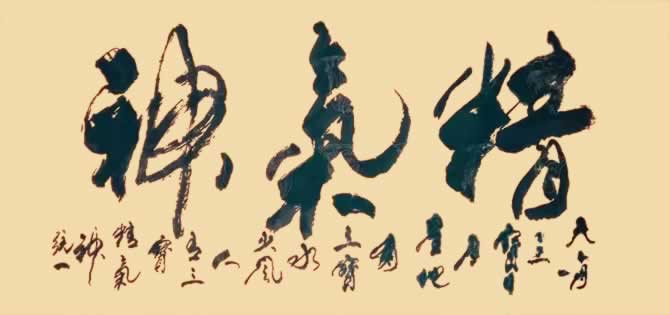 精氣神
天有三寶日月星地有三寶水火風人有三寶精氣神統一